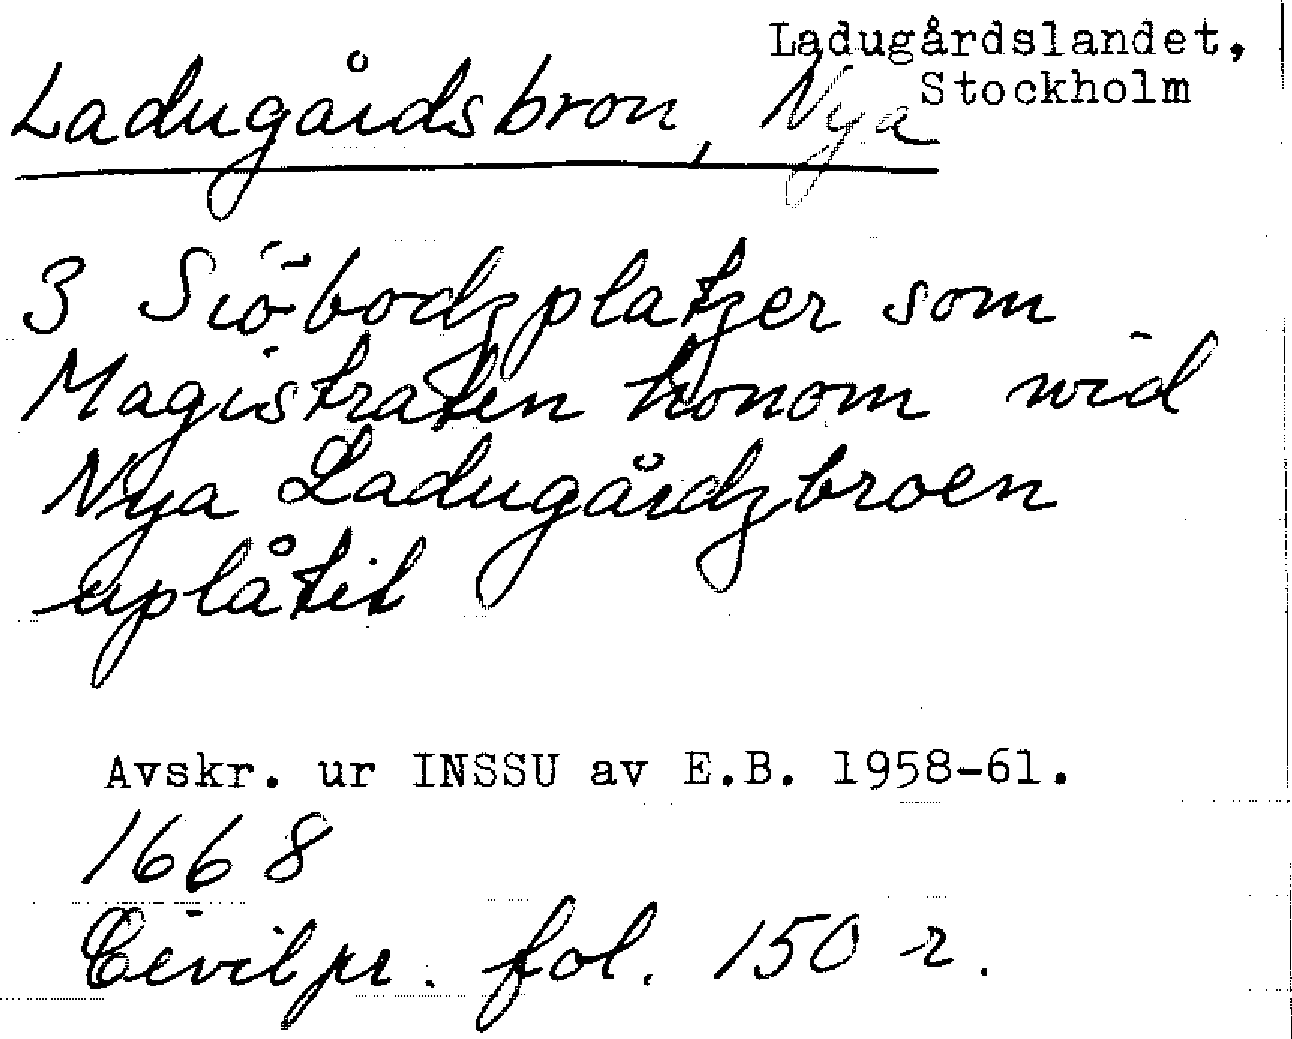 Ladugårdslandet,
Stockholm
Ladugårdsbron, Nya
3 Siöbodzplatzer som
Magistraten honom wid
Nya Ladugårdzbroen
uplåtit
Avskr. ur INSSU av E.B. 1958-61.
1668
Civilpr. fol. 150 r.